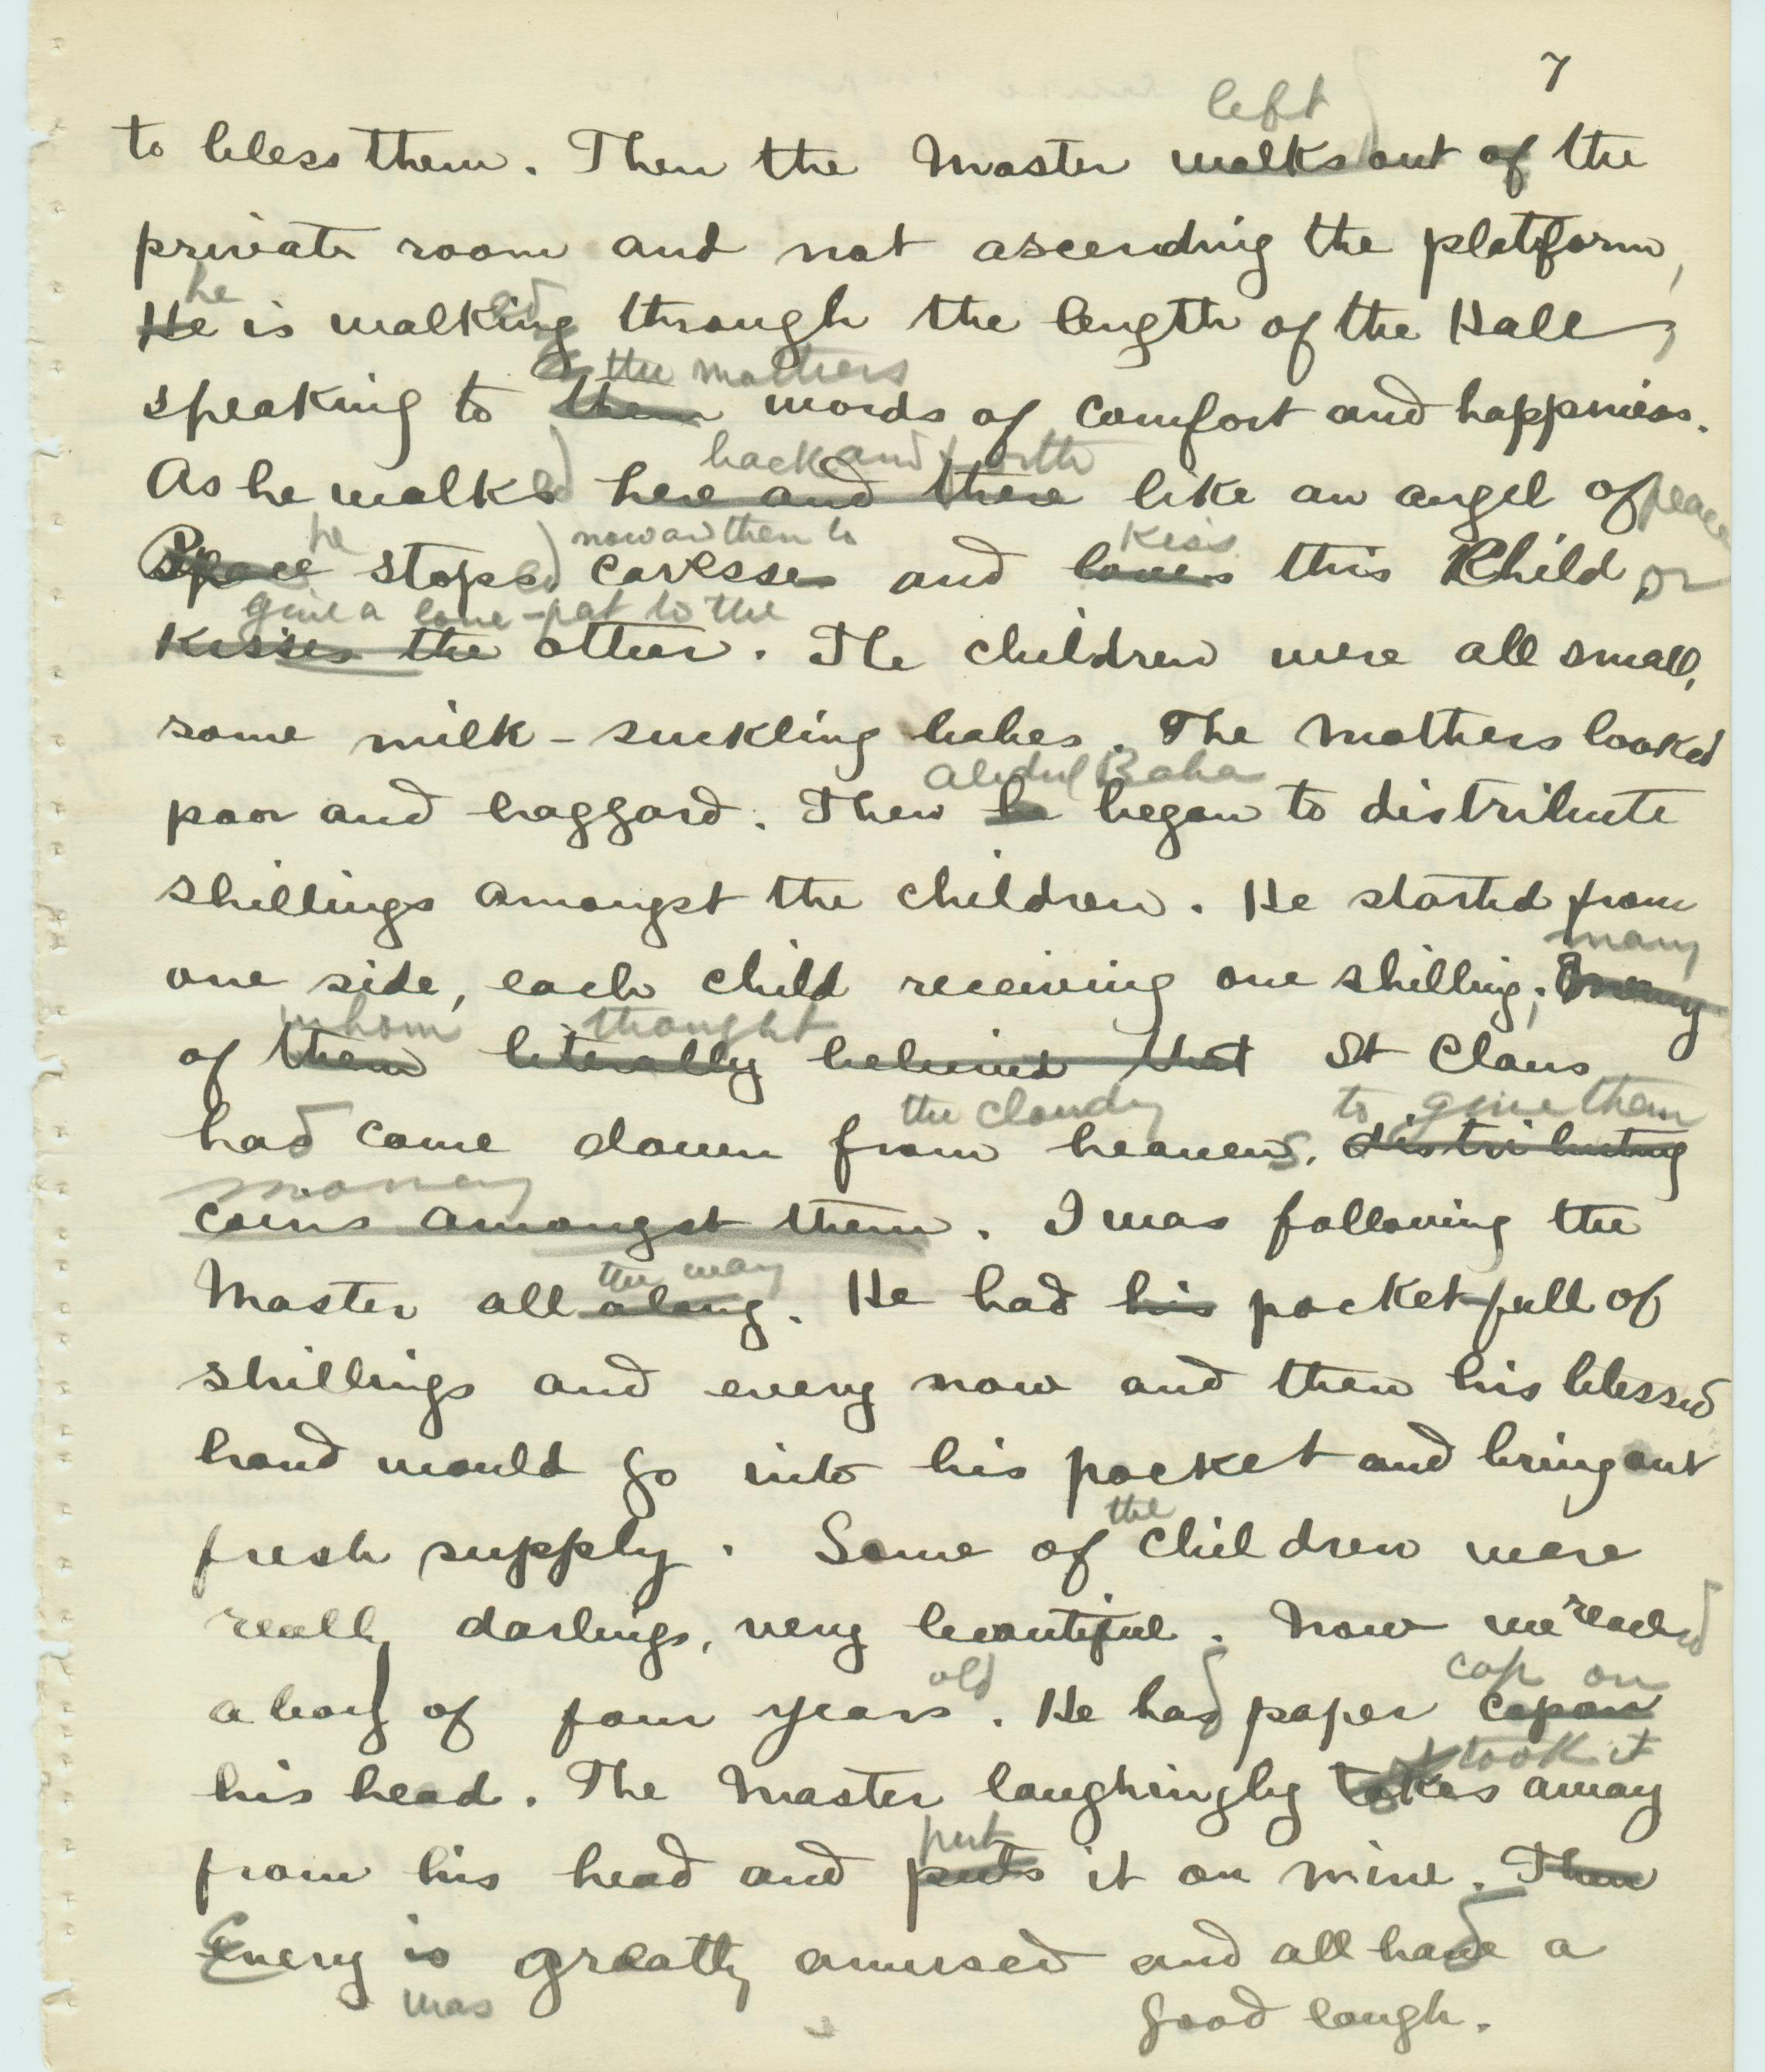 7
left
to bless them. Then the Master walks out of the
private room and not ascending the platform,
he ed
He is walking through the length of the Hall,
the mothers
speaking to them words of comfort and happiness.
back and forth
As he walks ed here and there like an angel of peace
he now and then to kiss
Peace stops ed caresses and loves this Child or
give a love-pat to the
kisses the other. The children were all small,
some milk-suckling babes. The Mothers looked
Abdul Baha
poor and haggard. Then he began to distribute
shillings amongst the children. He started from
many
one side, each child receiving one shilling; Many
whom thought
of them literally believed that St Claus
the cloudy to give them
had come down from heavens, distributing
money
coins amongst them. I was following the
the way
Master all along. He had his pocket full of
shillings and every now and then his blessed
hand would go into his pocket and bring out
the
fresh supply. Some of children were
really darlings, very beautiful. Now we reached
old cap on
a boy of four years. He had paper cap on
took it
his head. The Master laughingly takes away
put
from his head and puts it on mine. Then
Every is greatly amused and all had a
was good laugh.